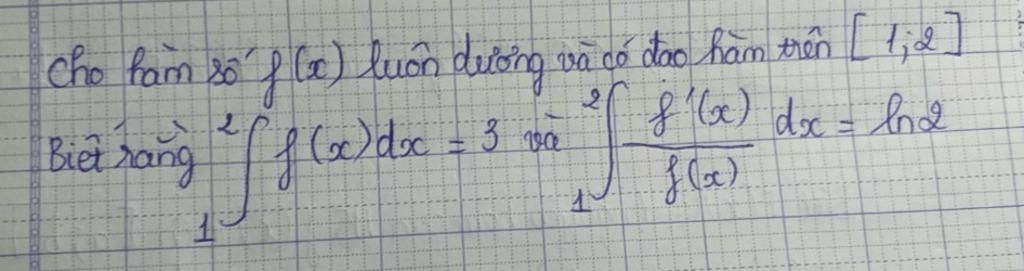 Cho hàm số f(x) luôn dương và có đạo hàm trên [1;2]
Biết rằng ∫₁² f(x)dx = 3 và ∫₁² f'(x)/f(x) dx = ln2